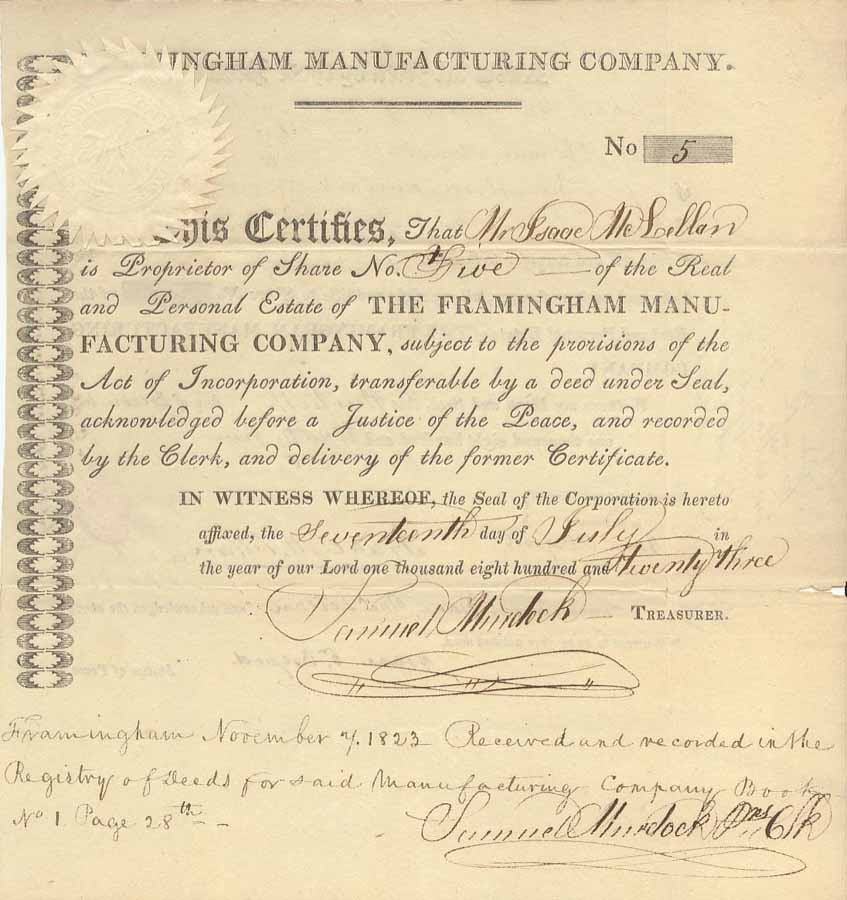 INGHAM MANUFACTURING COMPANY.
No 5
This Certifies, That Mr Isaac McLellan
is Proprietor of Share No. Five of the Real
and Personal Estate of THE FRAMINGHAM MANU-
FACTURING COMPANY, subject to the provisions of the
Act of Incorporation, transferable by a deed under Seal,
acknowledged before a Justice of the Peace, and recorded
by the Clerk, and delivery of the former Certificate.
IN WITNESS WHEREOF, the Seal of the Corporation is hereto
affixed, the Seventeenth day of July in
the year of our Lord one thousand eight hundred and twenty three
Samuel Murdock TREASURER.
Framingham November 7. 1823 Received and recorded in the
Registry of Deeds for said Manufacturing Company Book
No 1 Page 28th
Samuel Murdock Clk